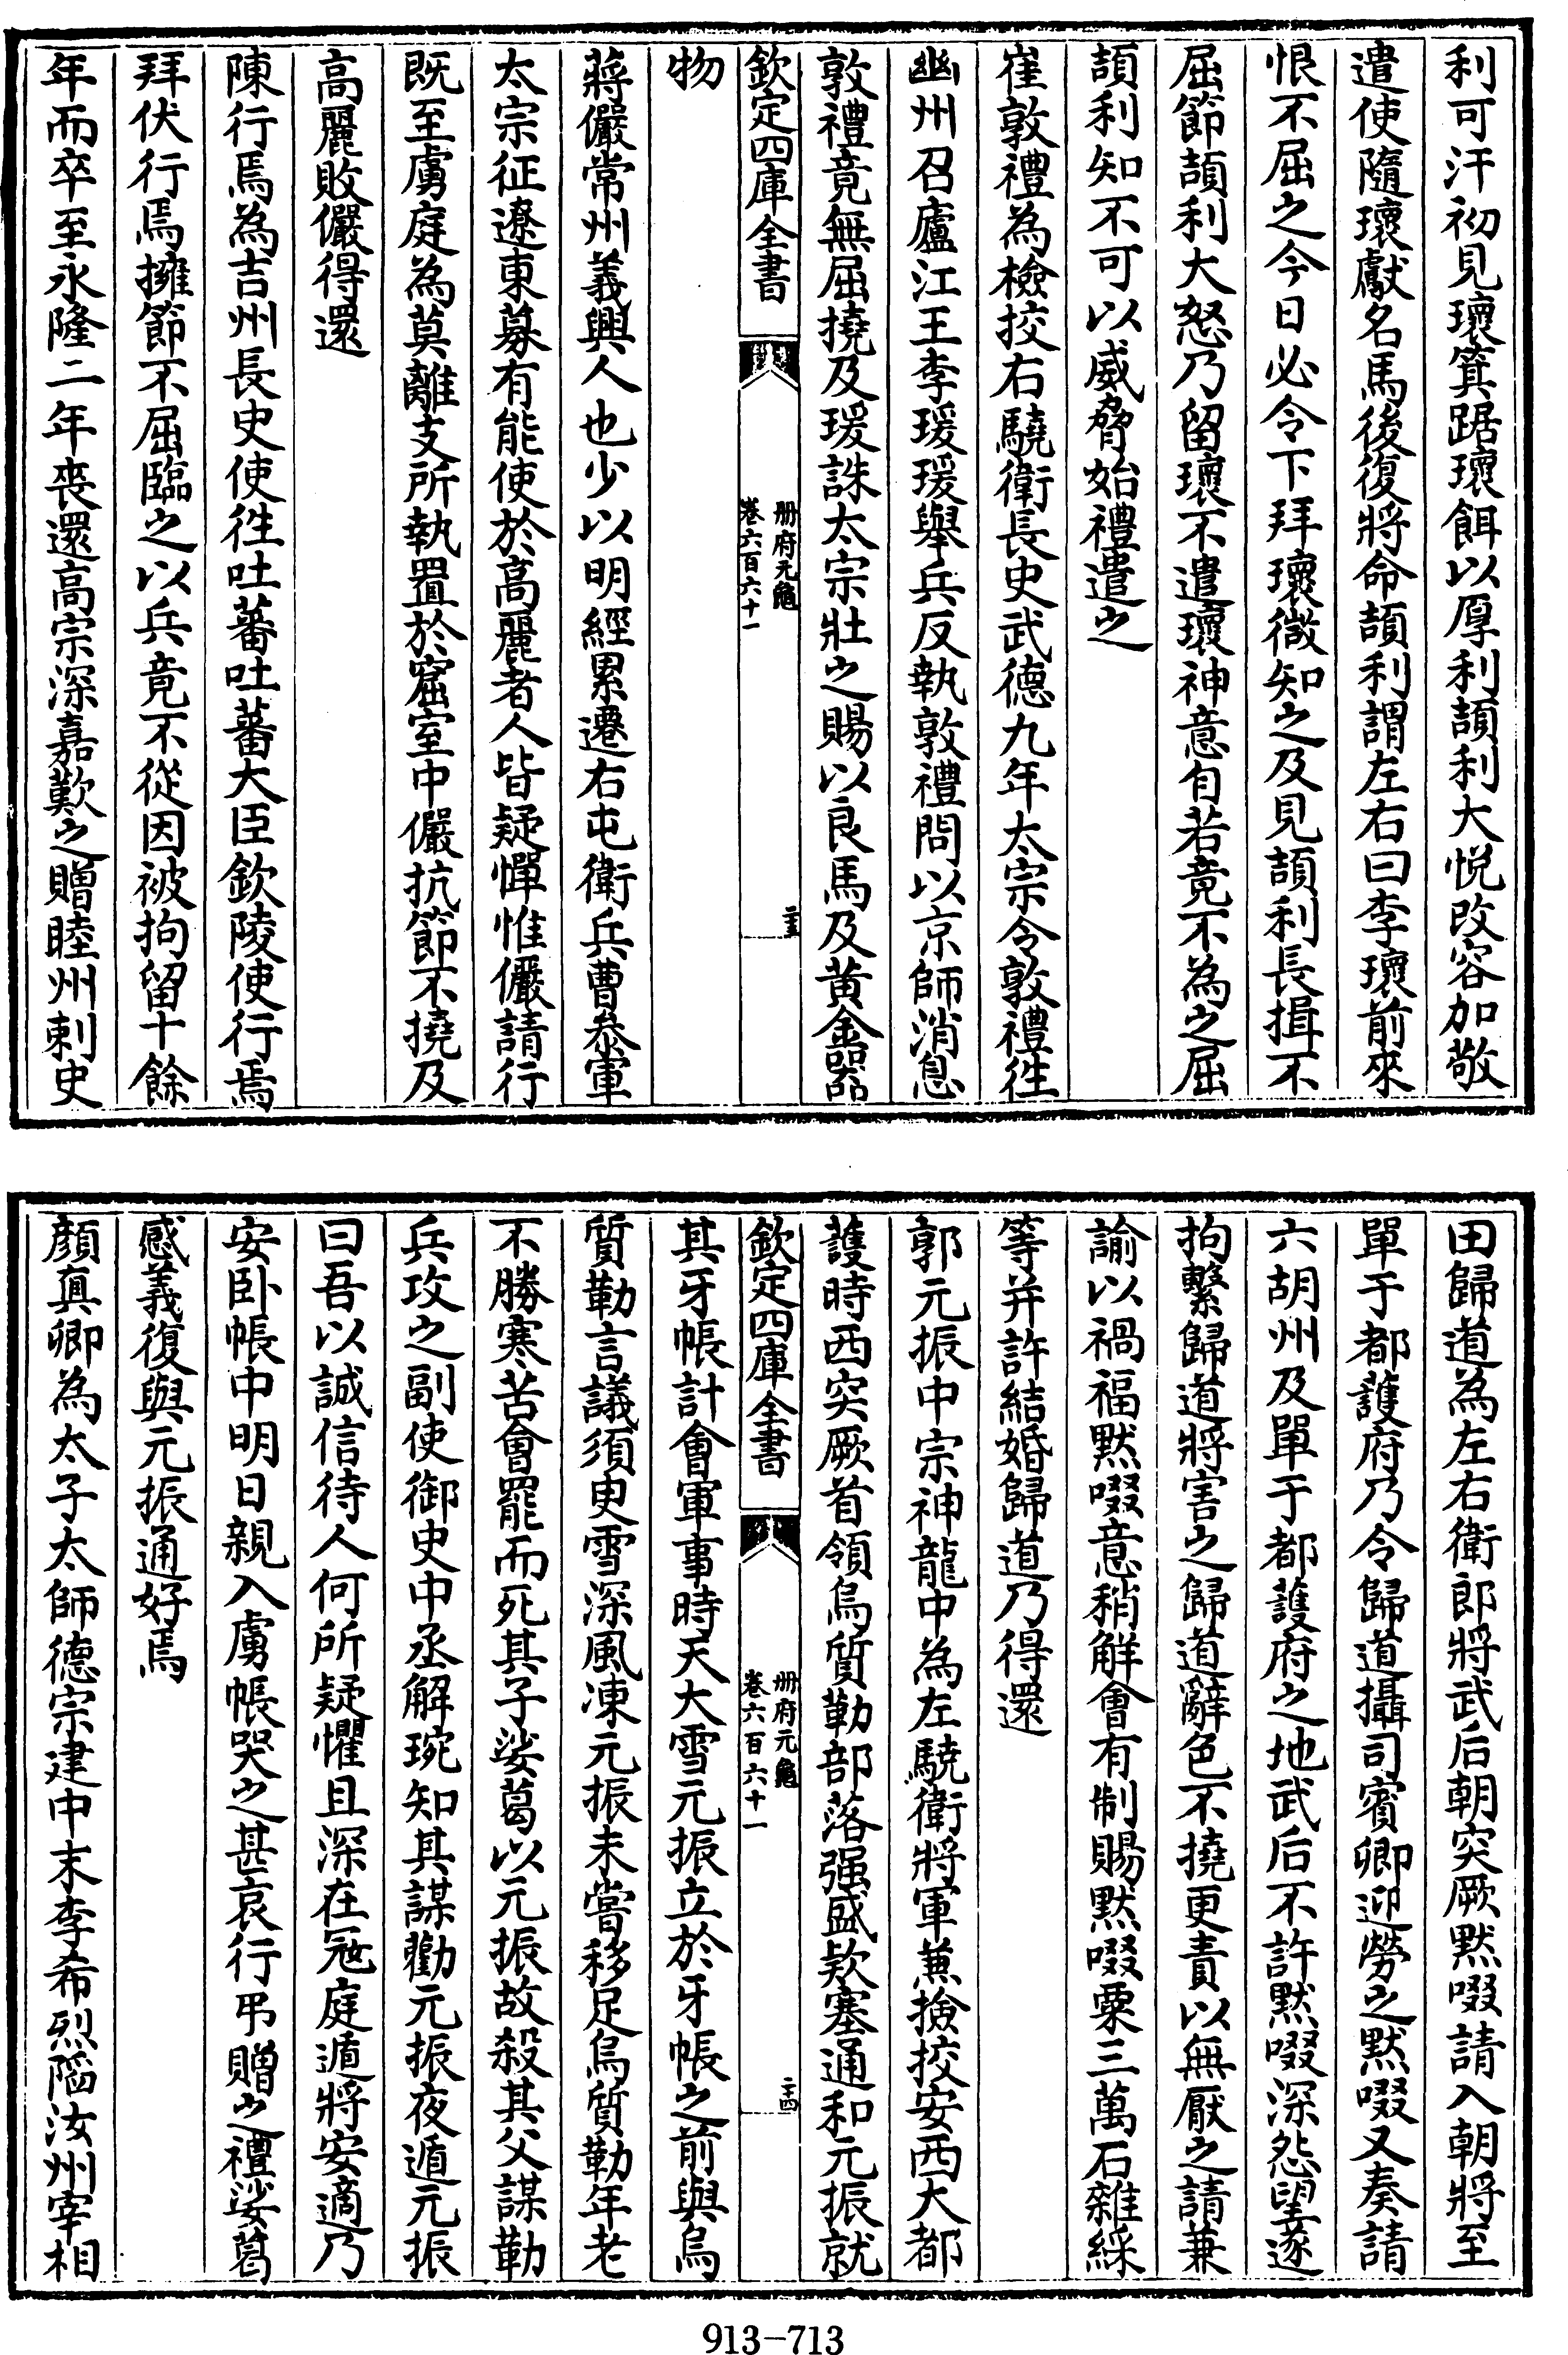 利可汗初見瓌箕踞瓌餌以厚利頡利大悦改容加敬
遣使隨瓌獻名馬後復將命頡利謂左右曰李瓌前來
恨不屈之今日必令下拜瓌微知之及見頡利長揖不
屈節頡利大怒乃留瓌不遣瓌神意自若竟不為之屈
頡利知不可以威脅始禮遣之
崔敦禮為檢挍右驍衛長史武德九年太宗令敦禮徃
幽州召廬江王李瑗瑗舉兵反執敦禮問以京師消息
敦禮竟無屈撓及瑗誅太宗壯之賜以良馬及黄金器
欽定四庫全書
册府元龜
卷六百六十一
二十三
物
蔣儼常州義興人也少以明經累遷右屯衛兵曹叅軍
太宗征遼東募有能使於高麗者人皆疑憚惟儼請行
既至虜庭為莫離支所執置於窟室中儼抗節不撓及
高麗敗儼得還
陳行焉為吉州長史使徃吐蕃吐蕃大臣欽陵使行焉
拜伏行焉擁節不屈臨之以兵竟不從因被拘留十餘
年而卒至永隆二年喪還高宗深嘉歎之贈睦州刺史
田歸道為左右衛郎將武后朝突厥黙啜請入朝將至
單于都護府乃令歸道攝司賓卿迎勞之黙啜又奏請
六胡州及單于都護府之地武后不許黙啜深怨望遂
拘繫歸道將害之歸道辭色不撓更責以無厭之請兼
諭以禍福黙啜意稍解會有制賜黙啜粟三萬石雜綵
等并許結婚歸道乃得還
郭元振中宗神龍中為左驍衛將軍兼撿挍安西大都
護時西突厥首領烏質勒部落强盛欵塞通和元振就
欽定四庫全書
册府元龜
卷六百六十一
二十四
其牙帳計會軍事時天大雪元振立於牙帳之前與烏
質勒言議須臾雪深風凍元振未嘗移足烏質勒年老
不勝寒苦會罷而死其子娑葛以元振故殺其父謀勒
兵攻之副使御史中丞解琬知其謀勸元振夜遁元振
曰吾以誠信待人何所疑懼且深在冦庭遁將安適乃
安卧帳中明日親入虜帳哭之甚哀行弔贈之禮娑葛
感義復與元振通好焉
顔真卿為太子太師德宗建中末李希烈陷汝州宰相
913-713